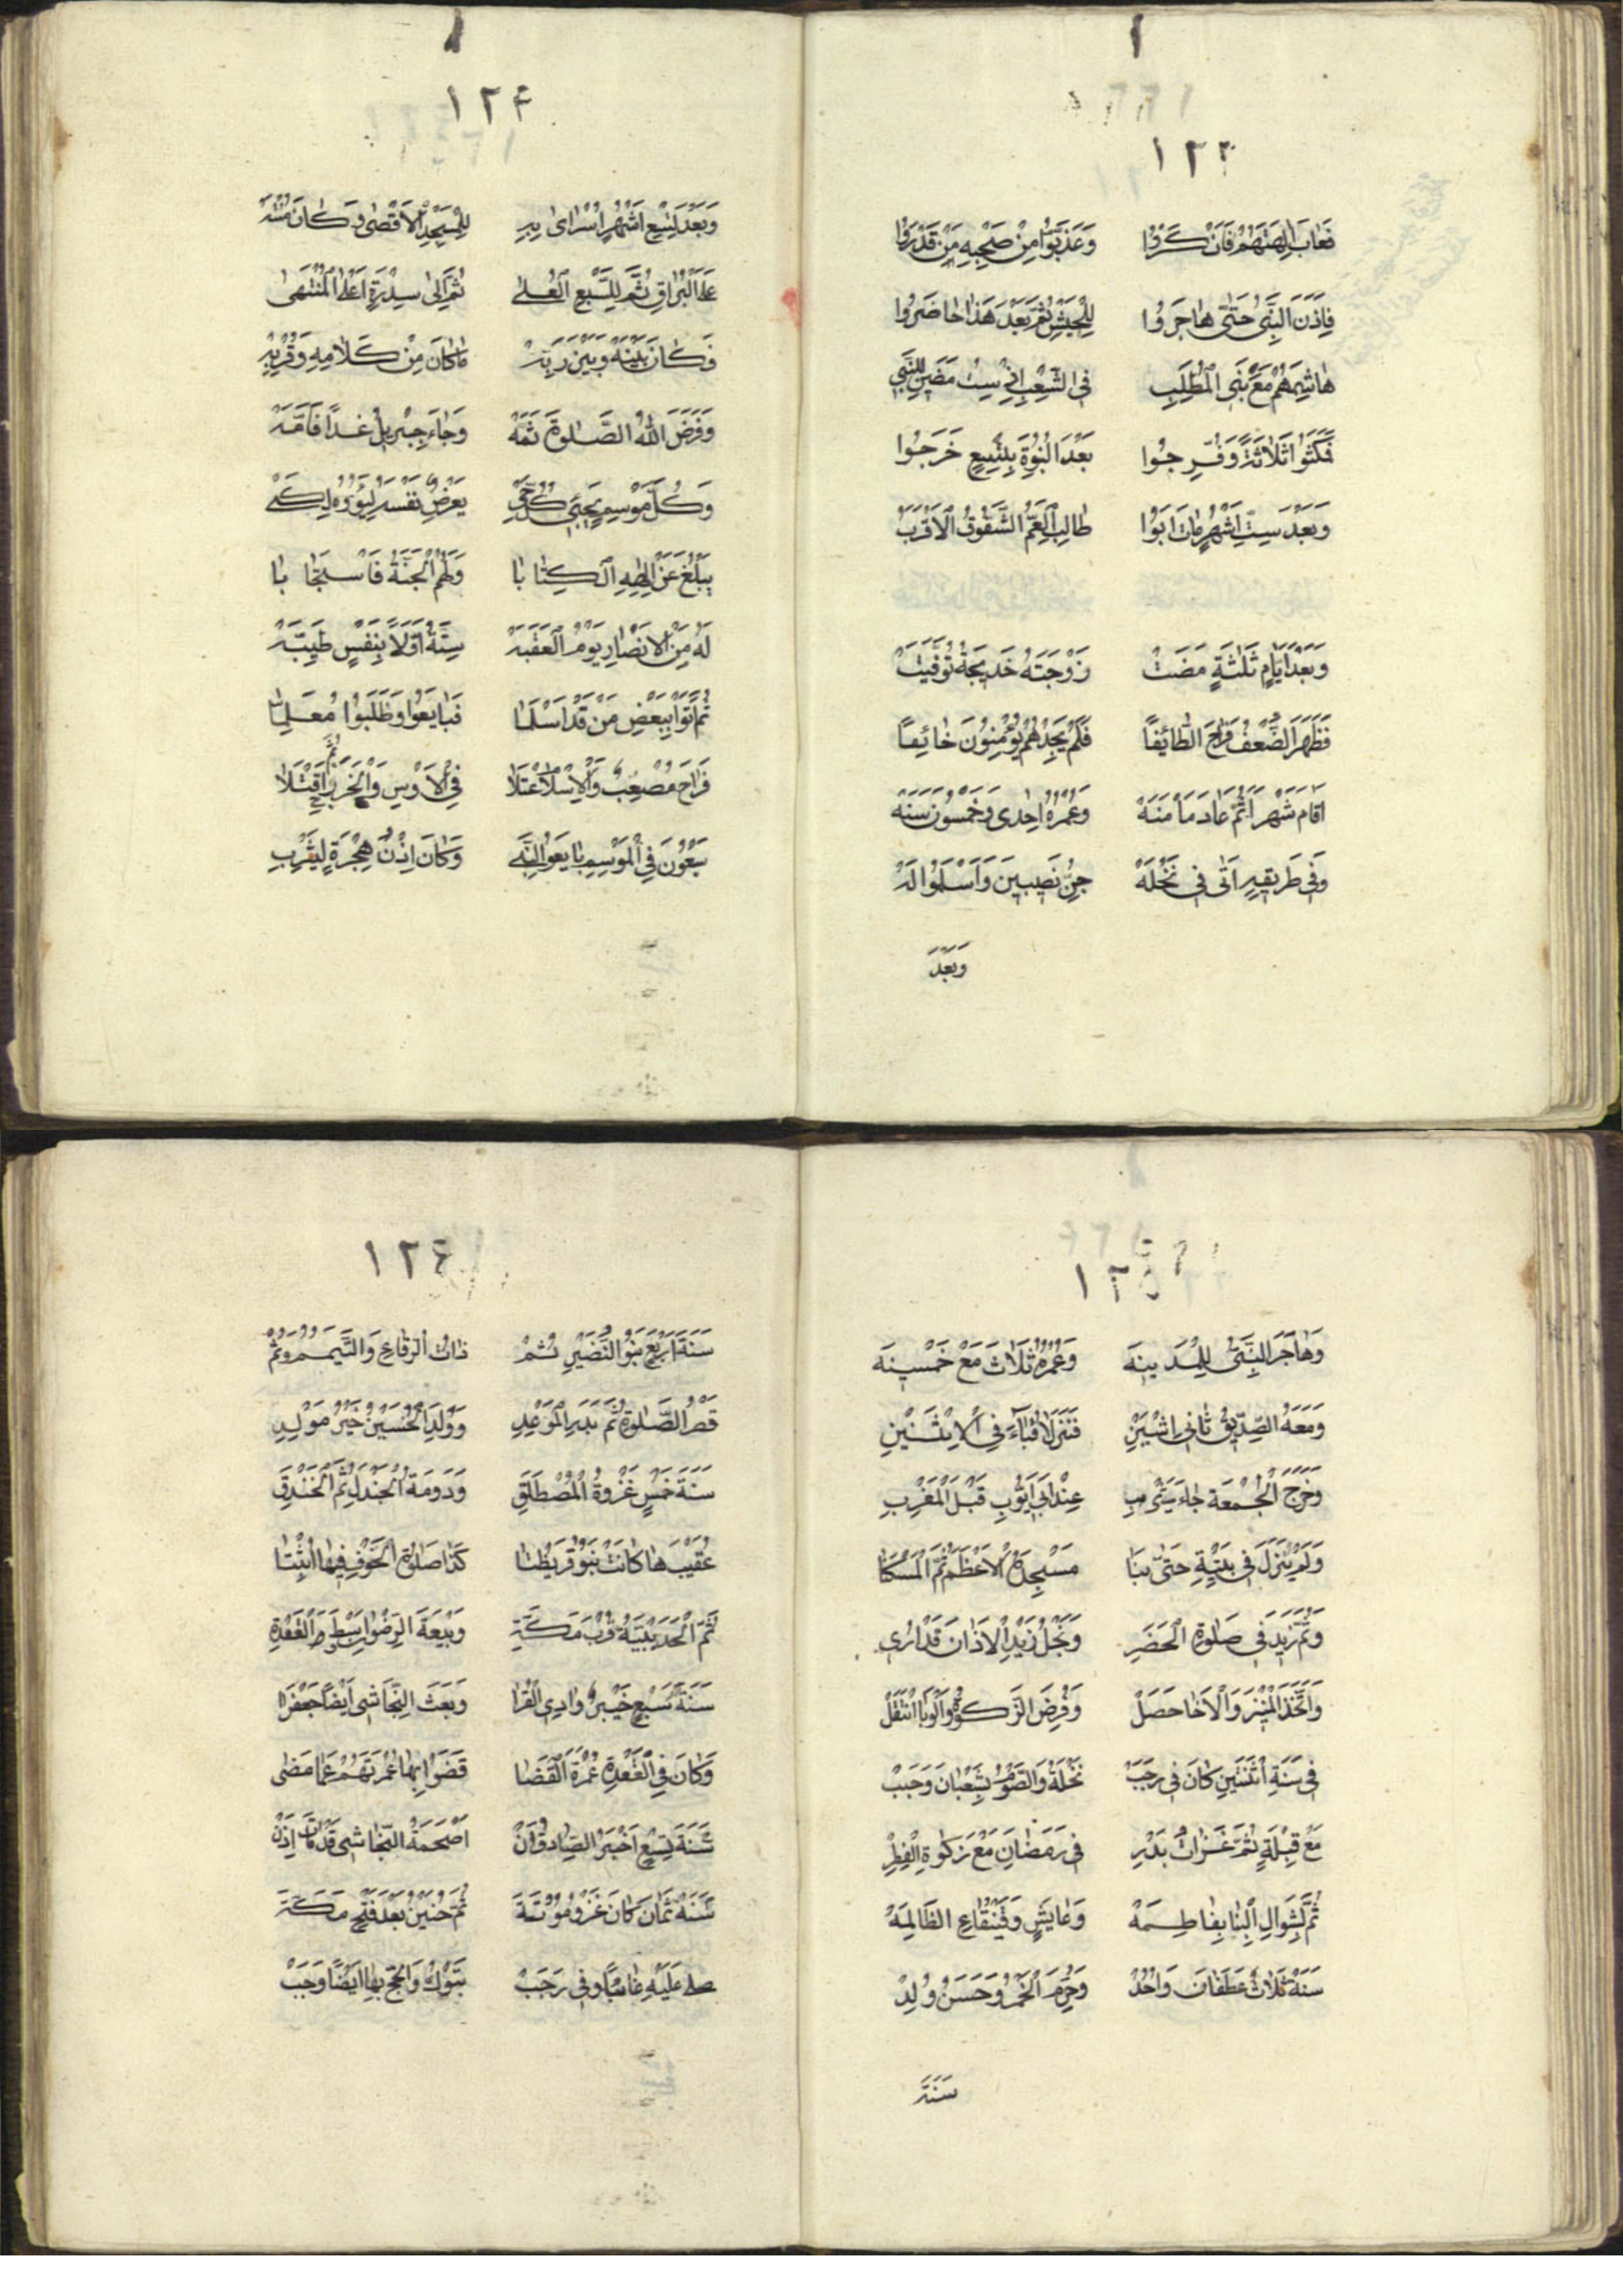 ١٢٣
فَعَابَ اٰلِهَتَهُمْ فَاَنْكَرُوْا وَعَذَّبُوْا مِنْ صَحْبِهِ مَنْ قَدَرُوْا
فَاِذَنَ النَّبِيُّ حَتّٰى هَاجَرُوا لِلْحَبَشِ ثُمَّ بَعْدَ هٰذَا حَاصَرُوا
هَاشِمَهُمْ مَعَ بَنِي الْمُطَّلِبِ فِي الشِّعْبِ اِذْ سِتٌّ مَضَيْنَ لِلنَّبِي
مَكَثُوا ثَلَاثَةً وَفُرِّجُوا بَعْدَ النُّبُوَّةِ بِتِسْعٍ خَرَجُوا
وَبَعْدَ سِتِّ اَشْهُرٍ مَاتَ اَبُوْ طَالِبٍ الْعَمُّ الشَّفُوْقُ الْاَقْرَبُ
وَبَعْدَ اَيَّامٍ ثَلٰثَةٍ مَضَتْ زَوْجَتُهُ خَدِيْجَةٌ تُوُفِّيَتْ
فَظَهَرَ الضُّعْفُ فَرَاحَ الطَّائِفَا فَلَمْ يَجِدْهُمْ يُؤْمِنُوْنَ خَائِفًا
اَقَامَ شَهْرًا ثُمَّ عَادَ مَأْمَنَهْ وَعُمْرُهُ اِحْدٰى وَخَمْسُوْنَ سَنَهْ
وَفِي طَرِيْقِهِ اَتٰى فِي نَخْلَهْ جِنُّ نَصِيْبِيْنَ وَاَسْلَمُوْا لَهْ
وَبَعْدَ
١٢٤
وَبَعْدَ تِسْعِ اَشْهُرٍ اُسْرٰى بِهِ لِلْمَسْجِدِ الْاَقْصٰى وَكَانَ مُنْتَبِهْ
عَلَى الْبُرَاقِ ثُمَّ لِلسَّبْعِ الْعُلٰى ثُمَّ اِلٰى سِدْرَةٍ اَعْلَى الْمُنْتَهٰى
فَكَانَ بَيْنَهُ وَبَيْنَ رَبِّهِ مَا كَانَ مِنْ كَلَامِهِ وَقُرْبِهِ
وَفَرَضَ اللّٰهُ الصَّلٰوةَ ثَمَّهْ وَجَاءَ جِبْرِيْلُ غَدًا فَاَمَّهْ
وَكُلَّ مَوْسِمٍ يَجِيْئُ كُلَّ حَيّ يَعْرِضُ نَفْسَهُ لِيُؤْوُوْهُ لِكَيْ
يُبَلِّغَ عَنْ اِلٰهِهِ الْكِتَابَا وَلَهُمُ الْجَنَّةُ فَاسْتَجَابَا
لَهُ مِنَ الْاَنْصَارِ يَوْمَ الْعَقَبَهْ سِتَّةٌ اَوَّلًا بِنَفْسٍ طَيِّبَهْ
ثُمَّ اَتَوْا بِبَعْضِ مَنْ قَدْ اَسْلَمَا فَبَايَعُوْا وَطَلَبُوْا مُعَلِّمَا
فَرَاحَ مُصْعَبٌ وَالْاِسْلَامُ اعْتَلَا فِي الْاَوْسِ وَالْخَزْرَجِ ثُمَّ اقْتَتَلَا
سَبْعُوْنَ فِي الْمَوْسِمِ بَايَعُوا النَّبِي وَكَانَ اِذْنُ هِجْرَةٍ لِيَثْرِبِ
١٢٥
وَهَاجَرَ النَّبِيُّ لِلْمَدِيْنَهْ وَعُمْرُهُ ثَلَاثٌ مَعْ خَمْسِيْنَهْ
وَمَعَهُ الصِّدِّيْقُ ثَانِيَ اثْنَيْنِ فَنَزَلَا قُبَاءَ فِي الْاِثْنَيْنِ
وَخَرَجَ الْجُمْعَةَ جَاءَ يَثْرِبِ عِنْدَ اَبِي اَيُّوْبِ قَبْلَ الْمَغْرِبِ
وَلَمْ يَنْزِلْ فِي بَيْتِهِ حَتّٰى بَنَا مَسْجِدَهُ الْاَعْظَمَ ثُمَّ الْمَسْكَنَا
وَثَمَّ زِيْدَ فِي صَلٰوةِ الْحَضَرِ وَنَجْلُ زَيْدٍ الْاَذَانَ قَدْ اُرِي
وَاتَّخَذَ الْمِنْبَرَ وَالْاِخَا حَصَلْ وَفُرِضَ الزَّكٰوةُ وَالْوَبَا انْتَقَلْ
فِي سَنَةِ اثْنَتَيْنِ كَانَ فِي رَجَبْ نَخْلَةٌ وَالصَّوْمُ بِشَعْبَانَ وَجَبْ
مَعْ قِبْلَةٍ ثُمَّ غَزَاتُ بَدْرِ فِي رَمَضَانَ مَعْ زَكٰوةِ الْفِطْرِ
ثُمَّ بِشَوَّالِ الْبِنَا بِفَاطِمَهْ وَعَايِشٍ وَقَيْنُقَاعِ الظَّالِمَهْ
سَنَةَ ثَلَاثٍ غَطَفَانُ وَاُحُدْ وَحُرِّمَ الْخَمْرُ وَحَسَنُ وُلِدْ
سَنَةَ
١٢٦
سَنَةَ اَرْبَعٍ بَنُوا النَّضِيْرِ ثُمْ ذَاتُ الرِّقَاعِ وَالتَّيَمُّمُ وَثُمّ
قَصْرُ الصَّلٰوةِ ثُمَّ بَدْرُ الْمَوْعِدِ وَوُلِدَ الْحُسَيْنُ خَيْرُ مَوْلِدِ
سَنَةَ خَمْسٍ غَزْوَةُ الْمُصْطَلِقِ وَدَوْمَةُ الْجَنْدَلِ ثُمَّ الْخَنْدَقِ
عُقَيْبَهَا كَانَتْ بَنُوْ قُرَيْظَتَا كَذَا صَلٰوةُ الْخَوْفِ فِيْهَا اُثْبِتَا
ثُمَّ الْحُدَيْبِيَّةُ قُرْبَ مَكَّةِ وَبَيْعَةُ الرِّضْوَانِ
سَنَةَ سَبْعٍ خَيْبَرٌ وَادِي الْقُرَا وَبَعَثَ النَّجَاشِي اَيْضًا جَعْفَرَا
وَكَانَ فِي الْقَعْدَةِ عُمْرَةُ الْقَضَا قَضَوْا بِهَا عُمْرَتَهُمْ عَمَّا مَضٰى
سَنَةَ تِسْعٍ اَخْبَرَ الصَّادِقُ اَنْ اَصْحَمَةُ النَّجَاشِي قَدْ مَاتَ اِذَنْ
سَنَةَ ثَمَانٍ كَانَ غَزْوُ مُوْتَةَ ثُمَّ حُنَيْنٌ بَعْدَ فَتْحِ مَكَّةَ
صلى عَلَيْهِ غَائِبًا وَفِي رَجَبْ تَبُوْكُ وَالْحَجُّ بِهَا اَيْضًا وَجَبْ